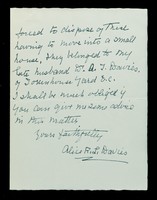 forced to dispose of these
having to move into a small
house, they belonged to my
late husband W. A. J. Davies,
of Towerhouse Yard S.E.
I shall be much obliged if
you can give me some advice
in this matter
Yours faithfully
Alice R. Davies